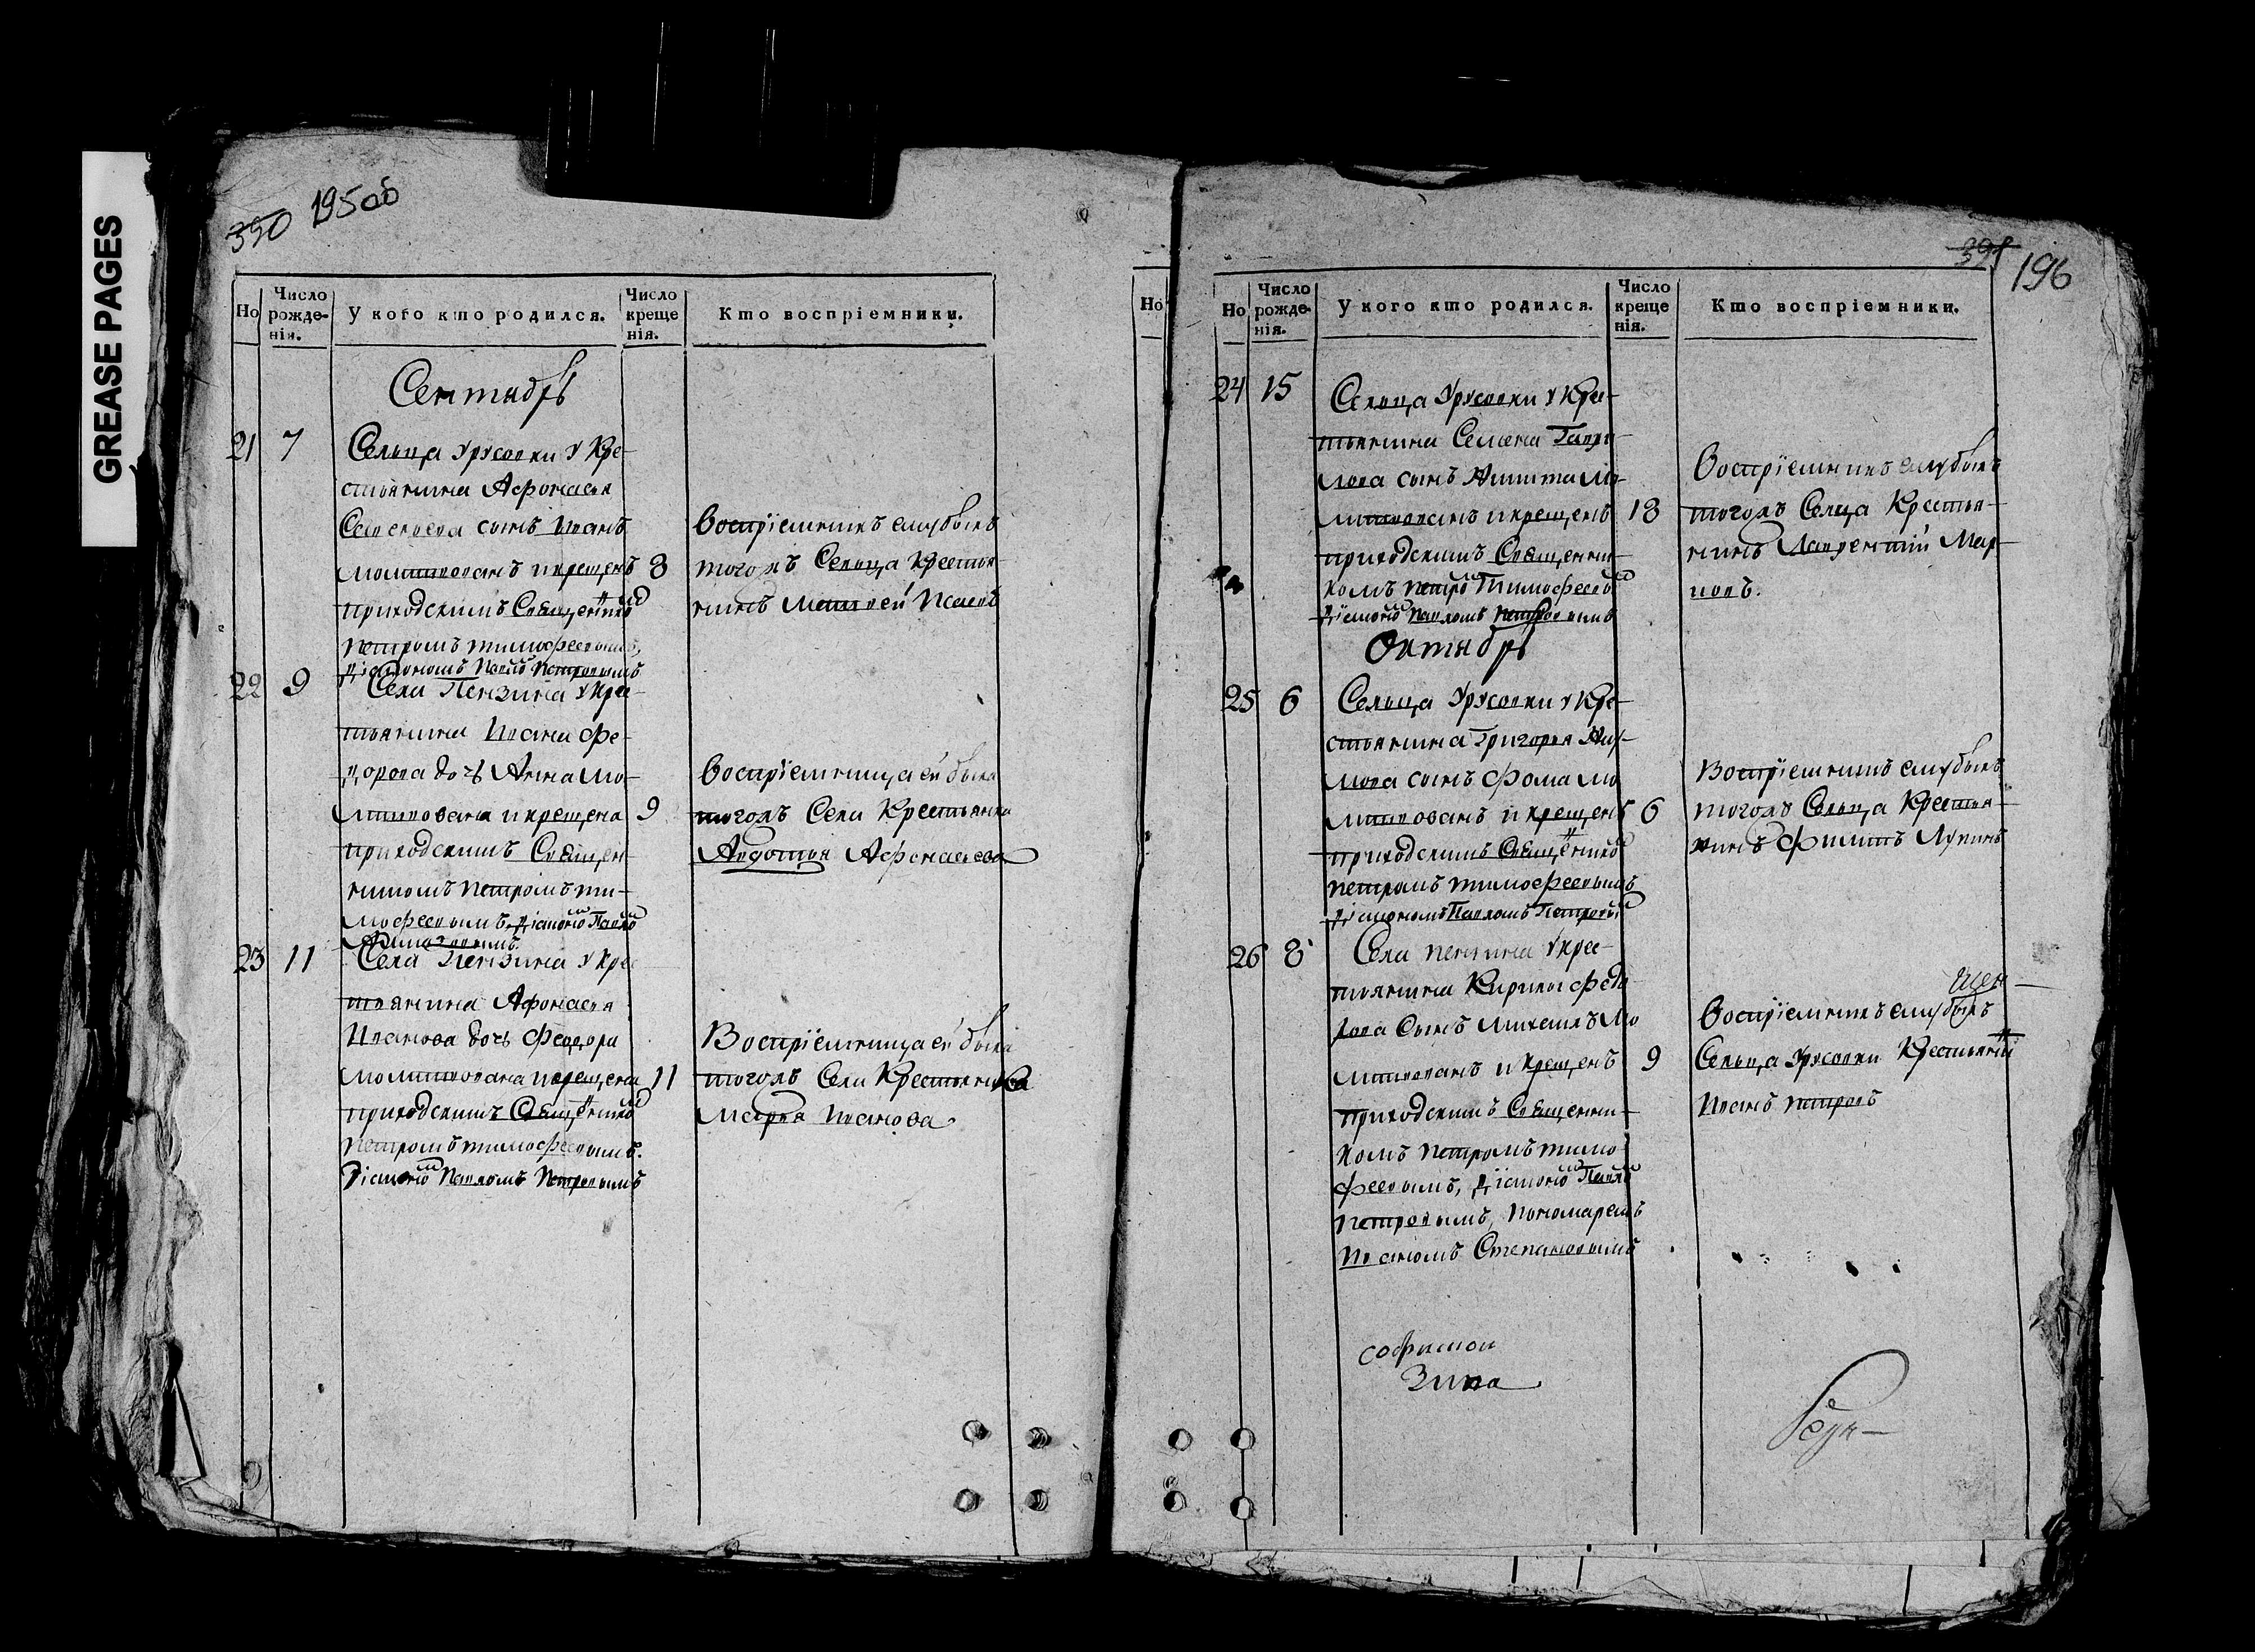 GREASE PAGES
390 195 об
Но
Число рожде-нія.
У кого кто родился.
Число креще нія.
Кто воспріемники.
Сентябрь
21 7 Сельца Урусовки у Кре-
стьянина Афонасья
сынъ Иванъ
молитвованъ и крещенъ 8
приходскимъ Священником
Петромъ Тимофеевымъ,
Діакономъ Павлом Петровымъ
Воспріемникъ ему былъ
тогожъ Сельца Крестья-
нинъ Матвей Исаевъ
22 9 Села Пензина у Кре-
стьянина Ивана Фе-
дорова дочь Анна мо-
литвована и крещена 9
приходскимъ Священ-
никомъ Петромъ Ти-
мофеевымъ, Діаконом Павлом
Воспріемница ей была
тогожъ Села Крестьянка
Авдотья Афонасьева
23 11 Села Пензина у Кре
стьянина Афонасья
Иванова дочь Федора
молитвована и крещена 11
приходскимъ Священником
Петромъ Тимофеевымъ.
Діаконом Павломъ Петровымъ
Воспріемница ей была
тогожъ Села Крестьянка
Марья Иванова
Но
391 196
Но
Число рожде-нія.
У кого кто родился.
Число креще нія.
Кто воспріемники.
24 15 Сельца Урусовки у Кре-
стьянина Семена Гаври-
лова сынъ Никита мо-
литвованъ и крещенъ 18
приходскимъ Священни-
комъ Петром Тимофеевым
Діаконом Павломъ Петровымъ
Воспріемникъ ему былъ
тогожъ Селца Крестья-
нинъ Лаврентий Мар-
ковъ.
Октябрь
25 6 Сельца Урусовки у Кре-
стьянина Григорья Нау-
мова сынъ Фома мо
литвованъ и крещенъ 6
приходскимъ Священником
Петромъ Тимофеевымъ
Діакономъ Павломъ Петровым
Воспріемникъ ему былъ
тогожъ Сельца Крестья-
нинъ Филипъ Лукинъ
26 8 Села Пензина у Кре-
стьянина Кирилы Федо
рова Сынъ Михаилъ мо
литвованъ и крещенъ 9
приходскимъ Священни-
комъ Петромъ Тимо
феевымъ, Діаконом Павлом
Петровымъ, Пономаремъ
Иваномъ Степановымъ
Воспріемникъ ему былъ
Сельца Урусовки Крестьянин
Иванъ Петровъ